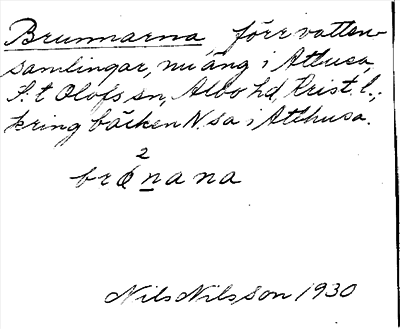 Brunnarna förr vatten-
samlingar, nu äng i Attusa,
S:t Olofs sn, Albo hd, Krist. l.;
kring bäcken N. sa i Atthusa.
2
brǿnana
Nils Nilsson 1930